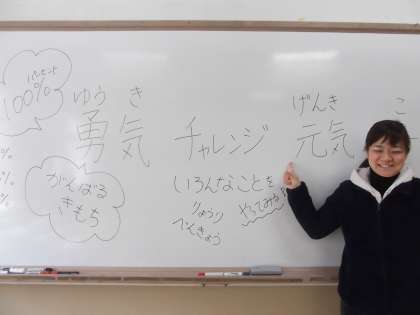 パーセント
100%
ゆうき
勇気
がんばる
きもち
チャレンジ
いろんなことを
りょうり
べんきょう
やってみる!!
げんき
元気
こ
%
%
%